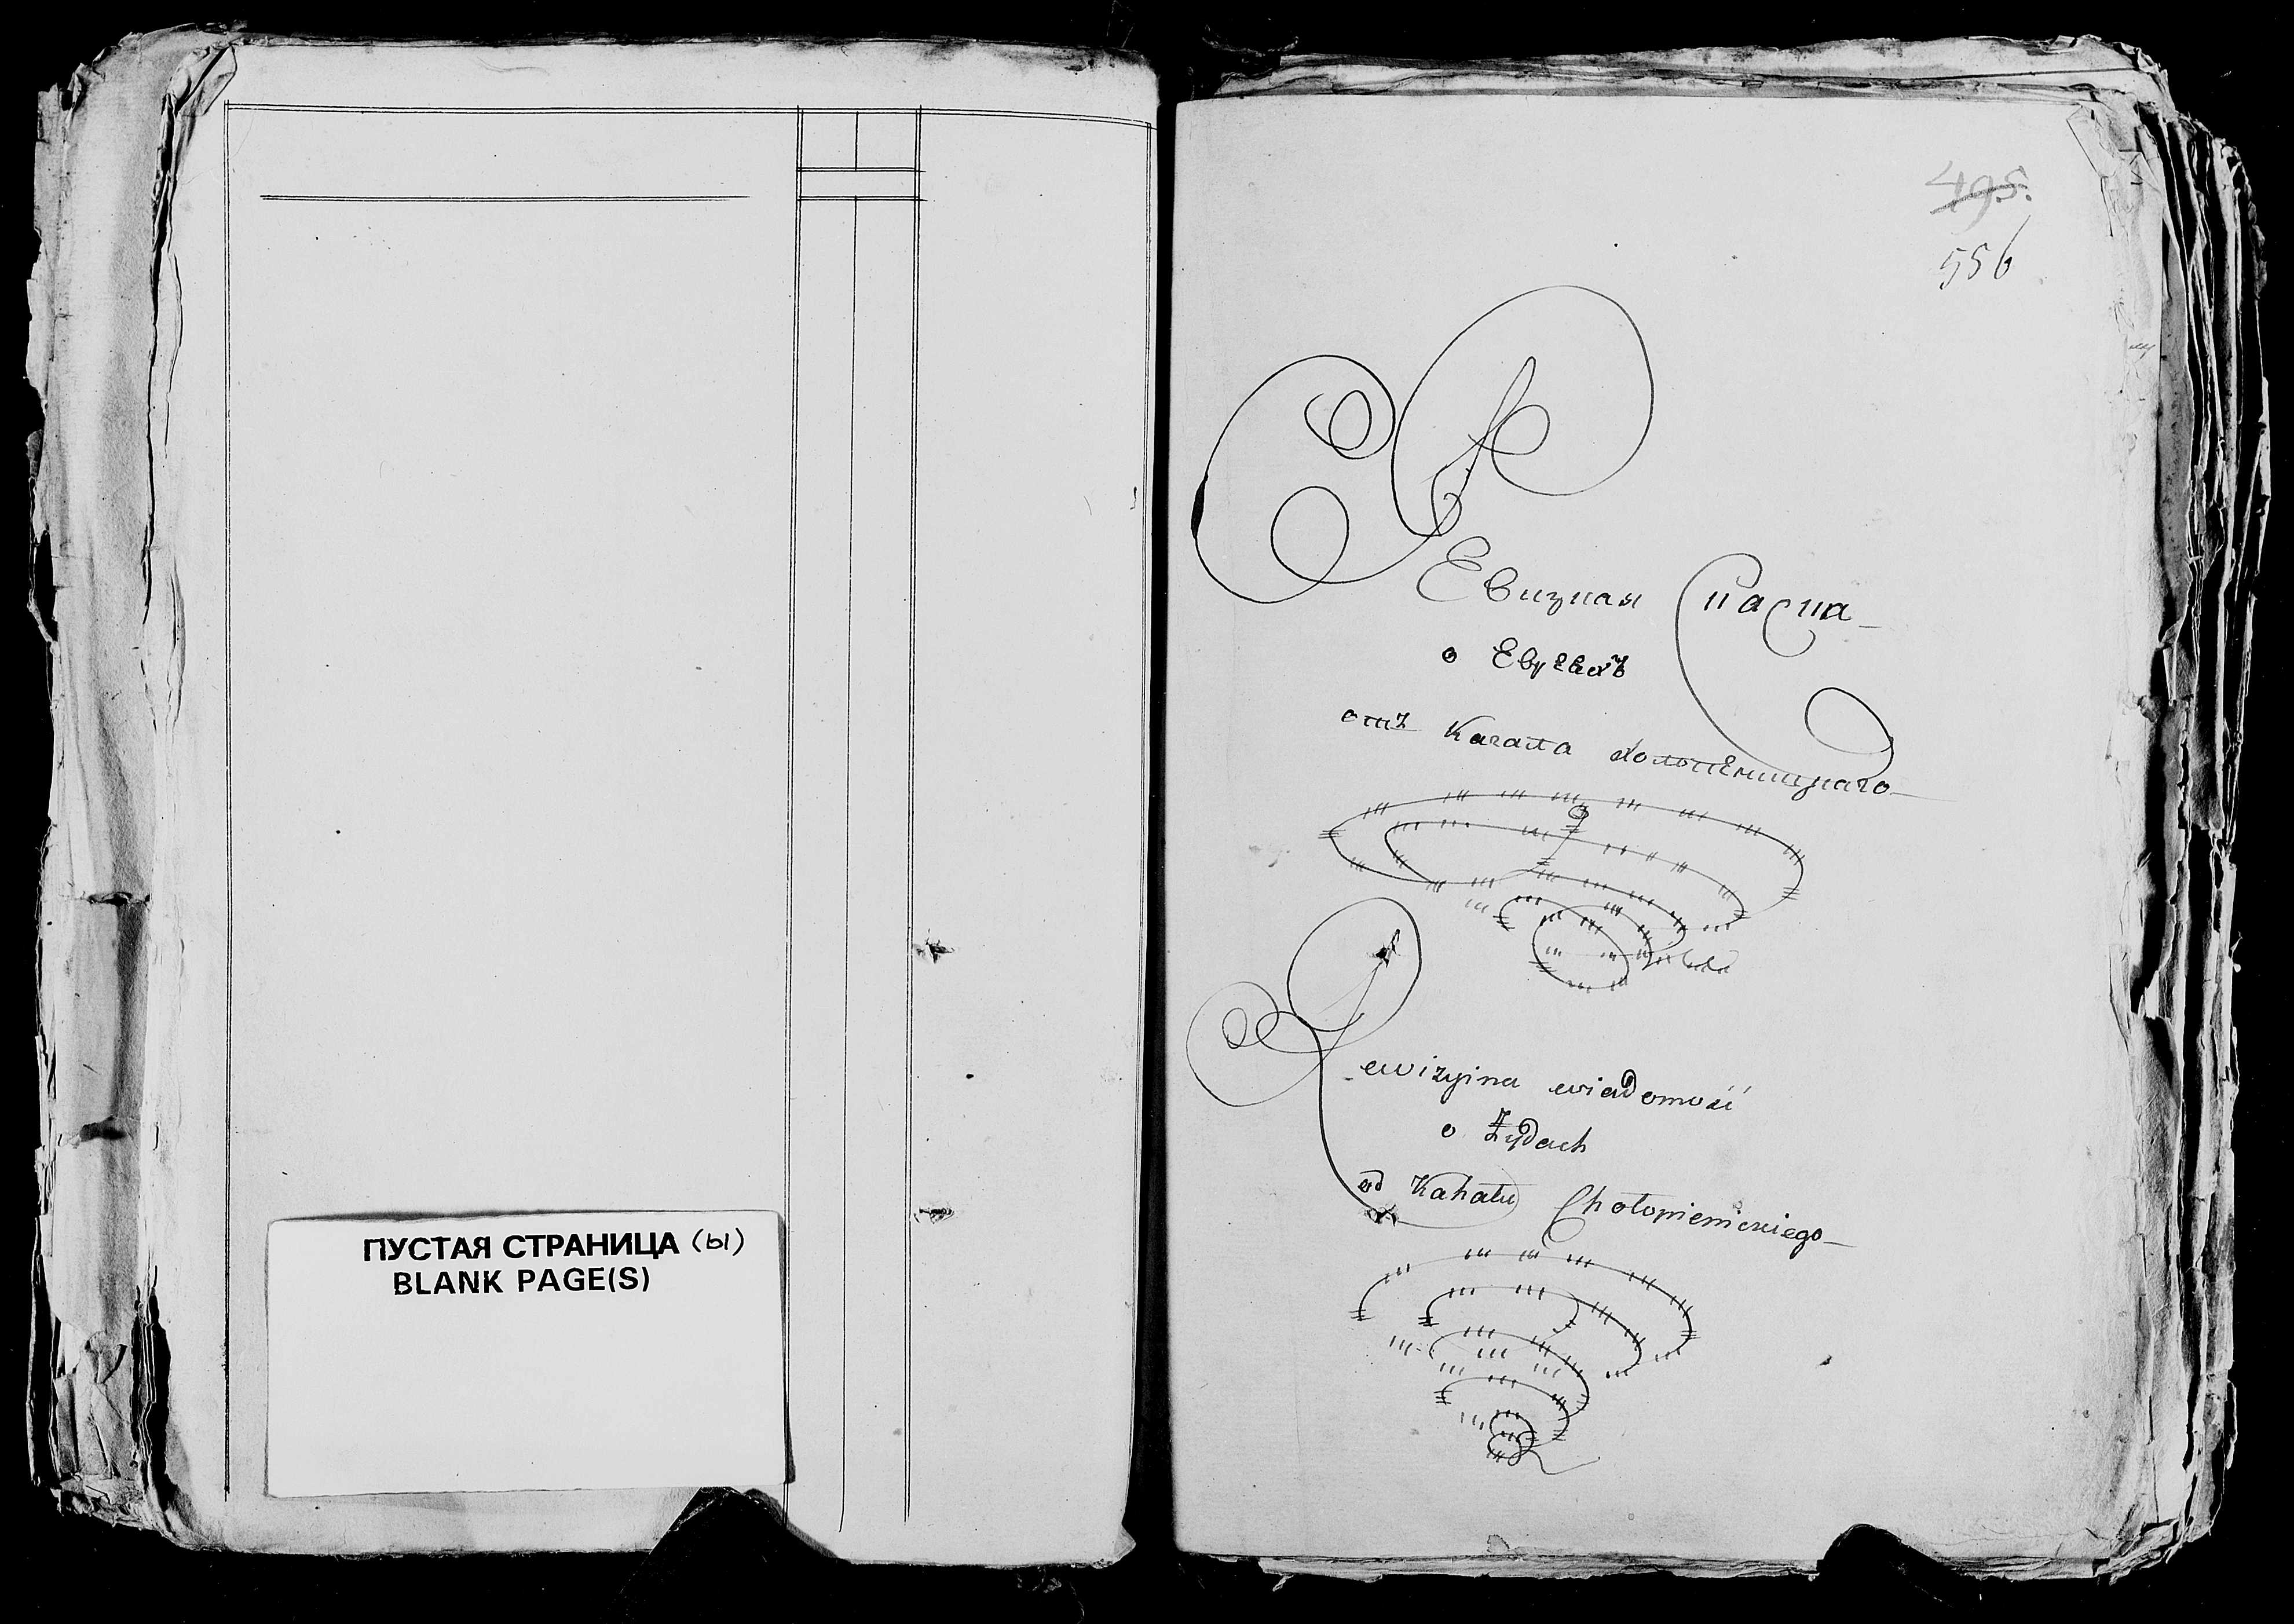 ПУСТАЯ СТРАНИЦА (ы)
BLANK PAGE(S)
495.
556
РЕвизная
о Еврѣяхъ
отъ Кагала Холопеницкаго
Rewizyina wiadomość
o Żydach
od Kahału Chołopienickiego